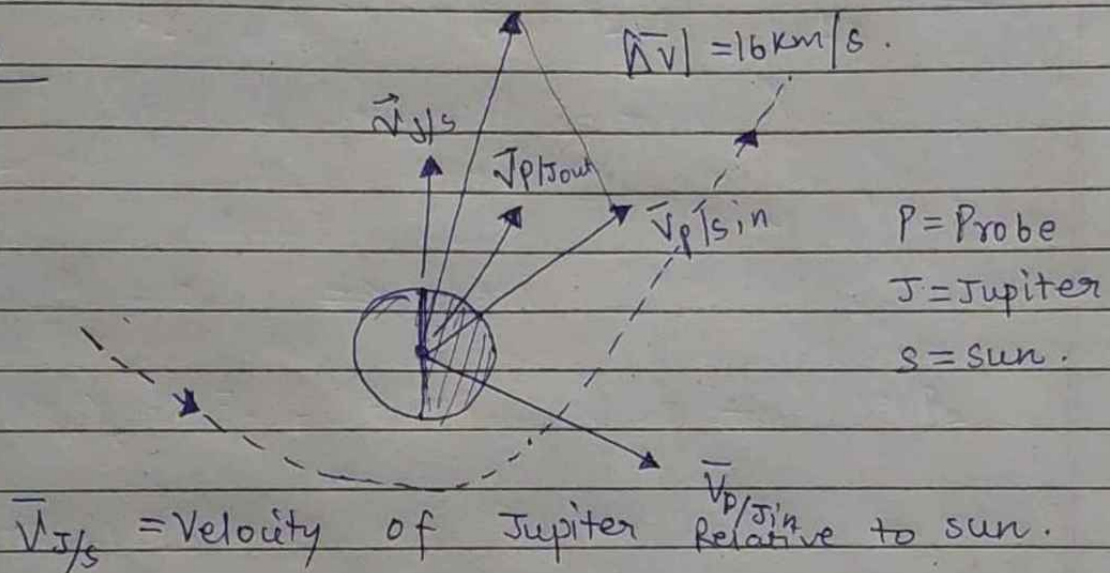 |Δv̄| = 16 km/s.
v⃗ J/s
v̄ P/Jout
V̄p/s in
P = Probe
J = Jupiter
S = sun.
V̄p/Jin
V̄J/s = Velocity of Jupiter Relative to sun.